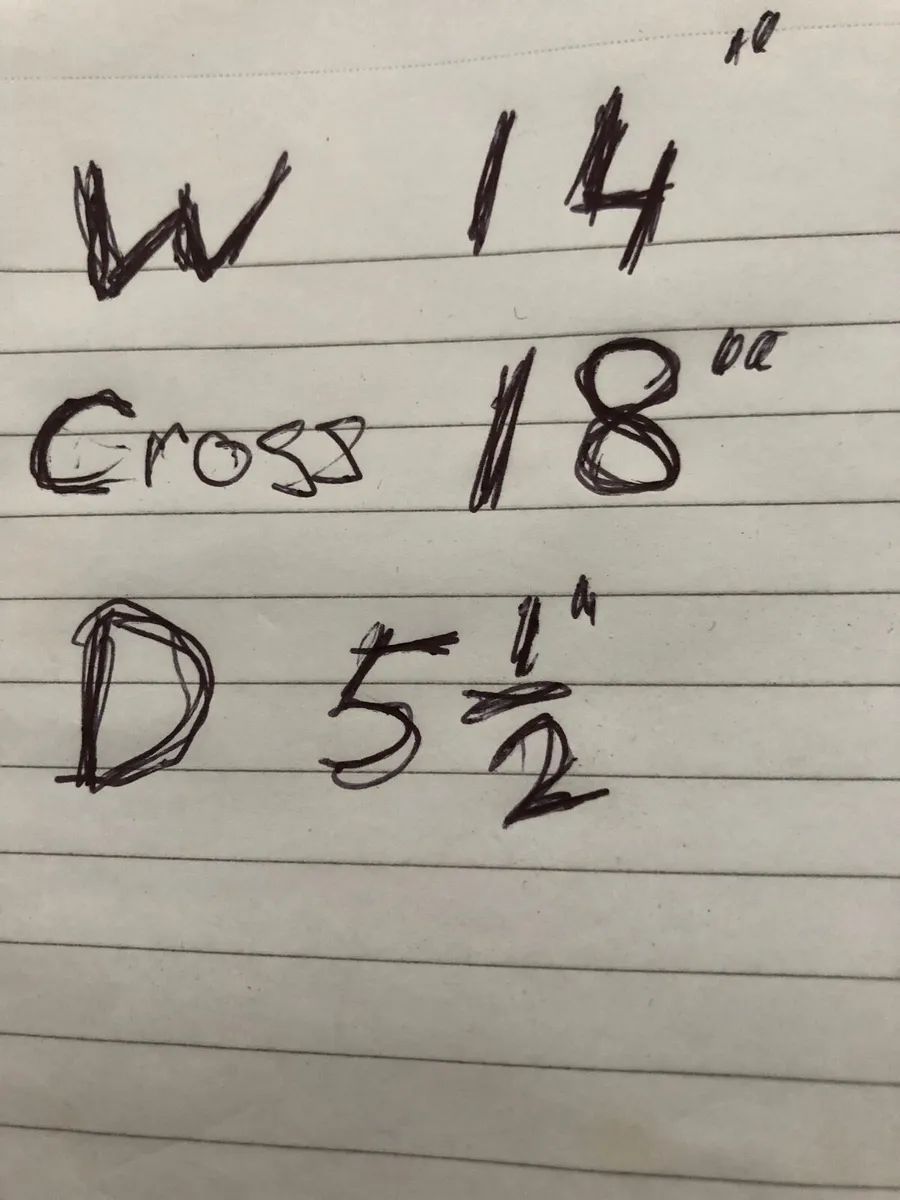 W 14"
Cross 18"
D 5 1/2"